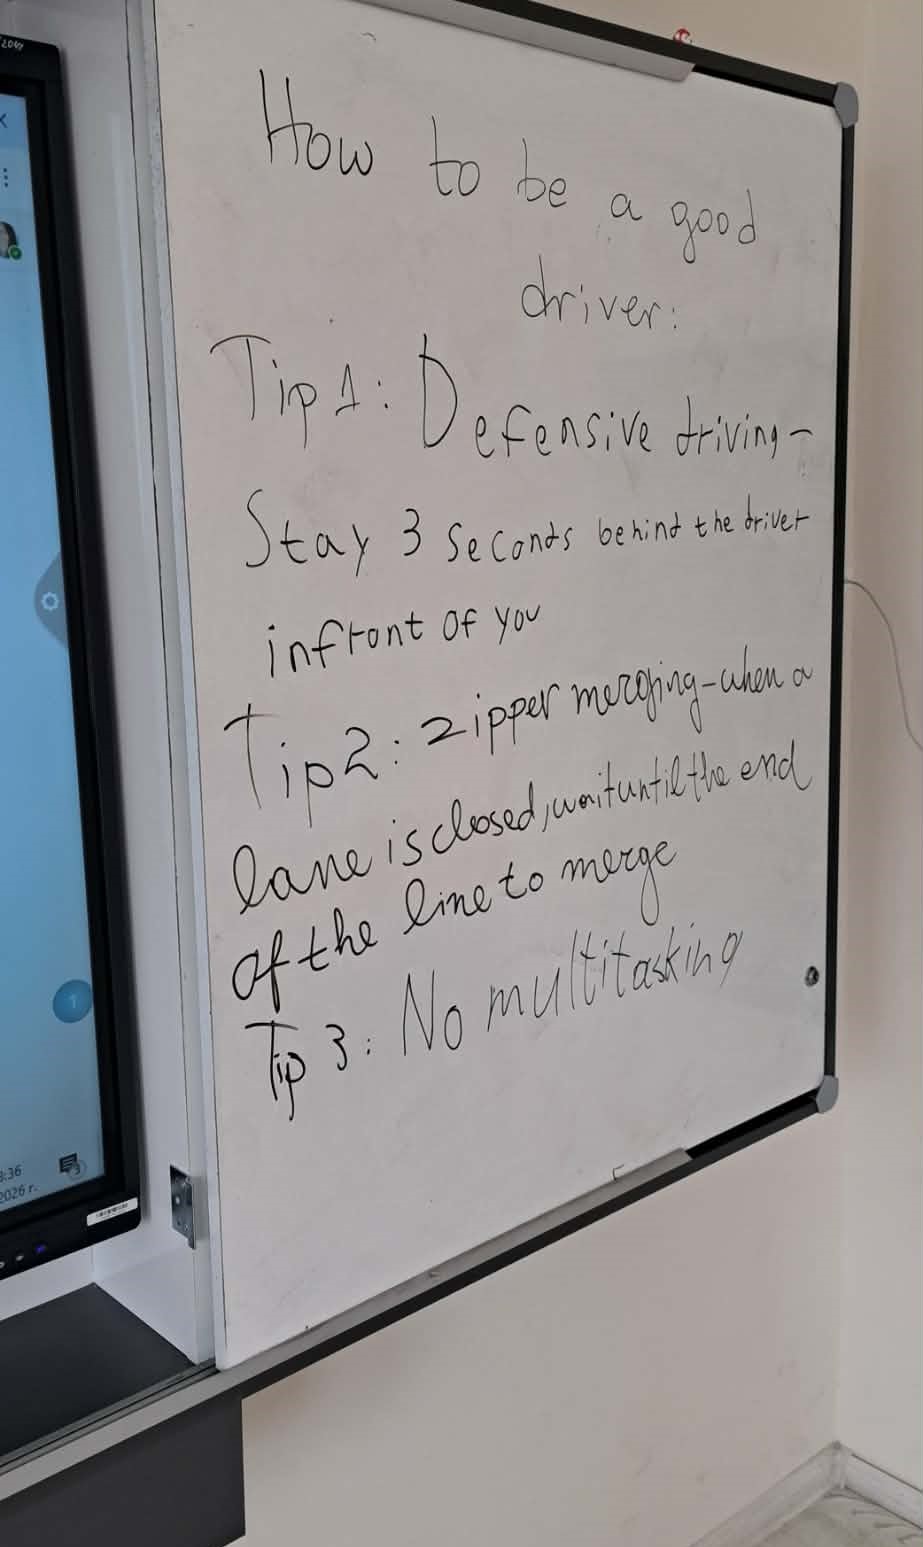 How to be a good
driver:
Tip 1: Defensive driving-
Stay 3 seconds behind the driver
infront of you
Tip 2: zipper merging-when a
lane is closed, wait until the end
of the line to merge
Tip 3: No multitasking
1
:36
2026 г.
3